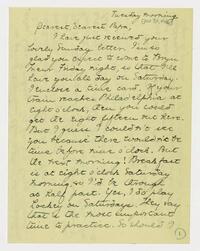 Tuesday morning
Dearest, dearest Papa,
I have just received your
lovely Sunday letter. I'm so
glad you expect to come to Bryn
Mawr Friday night so that I'll
have you all day on Saturday.
I enclose a time card. If your
train reaches Philadelphia at
eight o'clock, then you could
get the eight fifteen out here.
But I guess I couldn't see
you because there wouldn't be
time before nine o'clock. But
the next morning! Breakfast
is at eight o'clock Saturday
morning so I'd be through
at half past. Yes, I do play
hockey on Saturdays. They say
that is the most important
time to practice. So should I
1